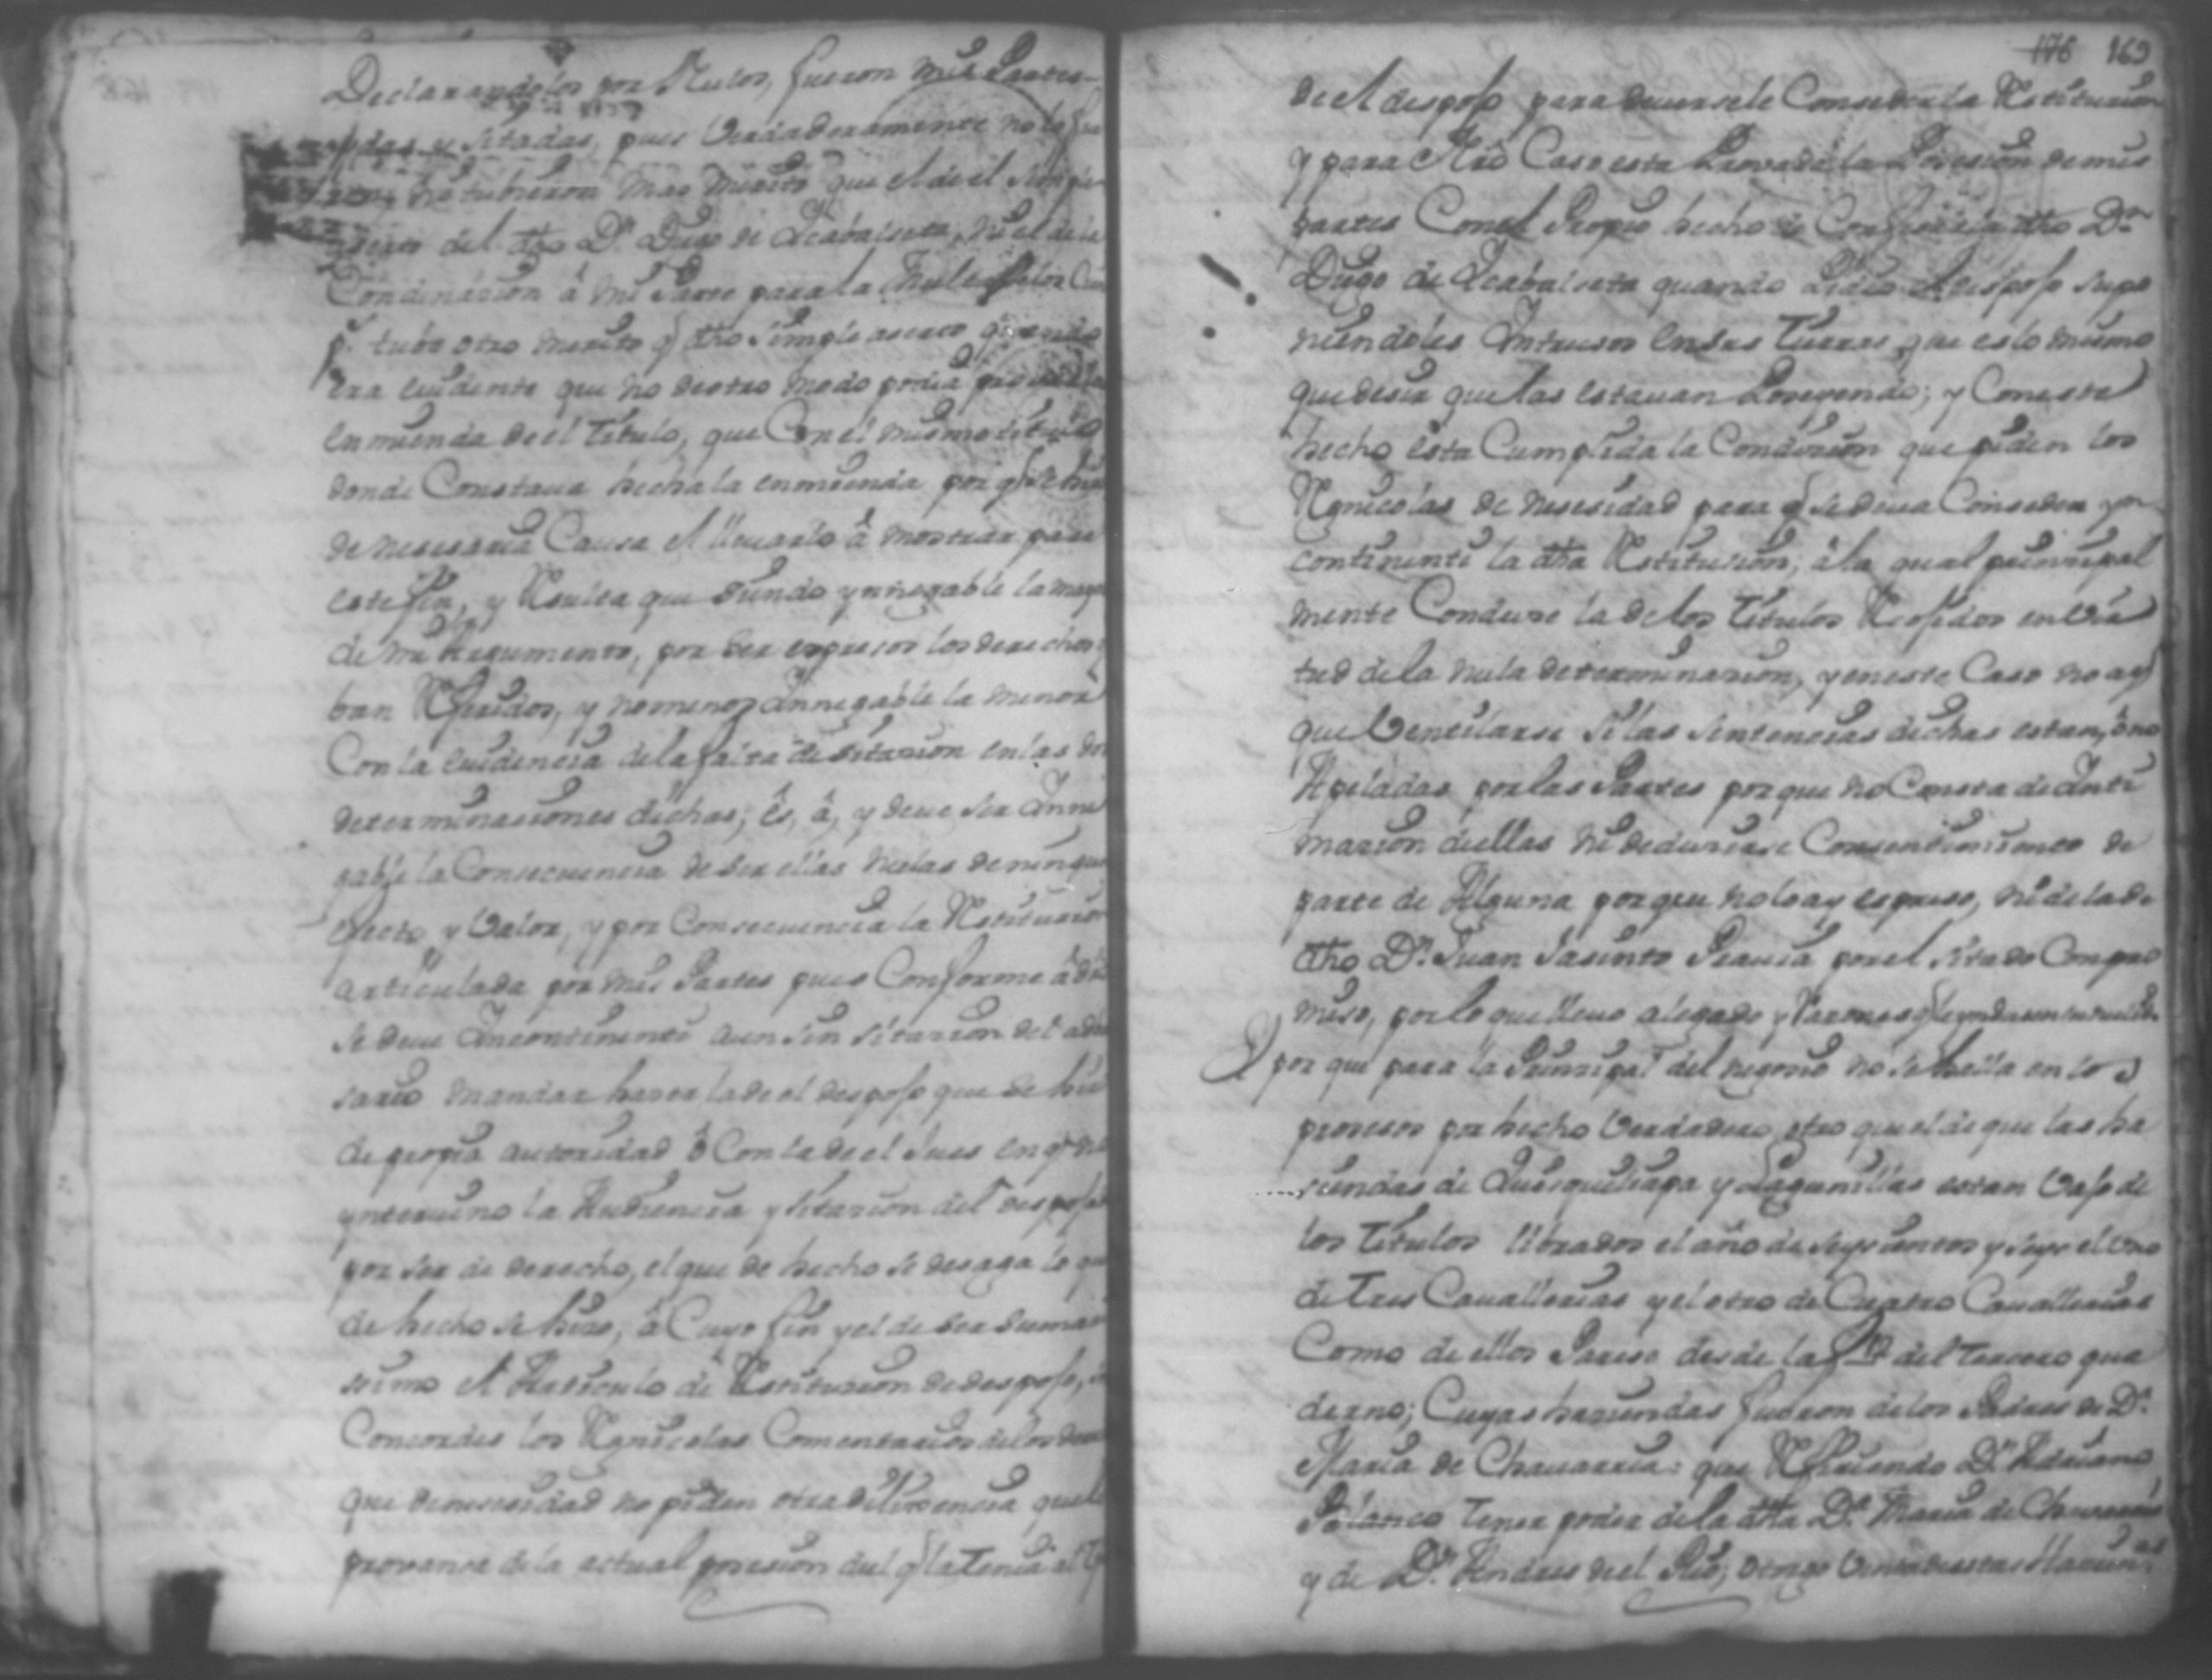 Declarandolos por Nulos, fueron mis Partes
y sitadas, pues Verdaderamente no lo fue
no tubieron mas merito que el de el simple
aserto del dho Dn Diego de Acabalseta, ni el de la
Condenasion â mi Parte para la
pr. tubo otro merito q dho simple aserto
era euidente que no de otro modo podia
enmienda de el titulo, que Con el mismo titulo
donde Constaua hecha la enmienda por q
de nesesaria Causa el lleuarlo â mostrar para
este fin, y Resulta que siendo ynnegable la mayor
de mi Argumento, por ser expresos los derechos q
ban Referidos, y no menos Innegable la menor
Con la euidencia de la falta de sitasion en las dos
determinasiones dichas; és, â, y deue ser Inne
gable la Consecuencia de ser ellas nulas de ningun
efecto y Valor, y por Consecuencia la Restitusion
articulada por mis Partes pues Conforme â dro
se deue Incontinenti aun sin sitasion del aduer
sario mandar haser la de el despojo que se hiso
de propia autoridad ô Con la de el Jues en q no
yntervino la Audiencia y sitasion del despojado
por ser de derecho, el que de hecho se desaga lo que
de hecho se hiso, â Cuyo fin y el de ser sumari
simo el Articulo de Restitusion de despojo,
Concordes los Regnicolas Comentarios de los
que de nesesidad no piden otra diligencia que la
prouansa de la actual posesion del q la tenia al
176 169
de el despojo para deuersele Conseder la Restitusion
y para Nro Caso esta Prouada la Posesion de mis
partes Con el Propio hecho de dho Dn
Diego de Acabalseta quando Pidio el despojo supo
niendoles Intrusos en sus tierras, que es lo mismo
que desir que las estauan Poseyendo; y Con este
hecho esta Cumplida la Condision que piden los
Regnicolas de nesesidad para q se deua Conseder yn
continenti la dha Restitusion; â la qual prinsipal
mente Conduse la de los titulos Recojidos en Vir
tud de la nula determinasion, y en este Caso no ay
que Ventilarse si las sentencias dichas estan, ô no
Apeladas por las Partes porque no Consta de Inti
masion de ellas ni dedusirse Consentimiento de
parte de Alguna porque no lo ay expreso, ni de la de
dho Dn Juan Jasinto Pauia por el sitado Compro
miso, por lo que lleuo alegado y Rasones q
Y por que para la Prinsipal del negosio no se halla en los
prosesos por hecho Verdadero otro que el de que las ha
siendas de Quesquiliapa y Lagunillas estan Vajo de
los titulos librados el año de seyscientos y seys el Vno
de tres Cauallerias y el otro de Cuatro Cauallerias
Como de ellos Parese desde la f 19 del tersero qua
derno; Cuyas hasiendas fueron de los Padres de Da
Maria de Chauarria: que Refiriendo Dn Adriano
Polanco tener poder de la dha Da Maria de Chauarria
y de Dn Andres de el Rio; otorgo Venta de estas Hasiendas